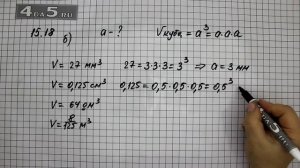 4GDZ5.RU
15.18
б) a - ? Vкуба = a³ = a·a·a
V = 27 мм³ 27 = 3·3·3 = 3³ ⇒ a = 3 мм
V = 0,125 см³ 0,125 = 0,5·0,5·0,5 = 0,5³
V = 64 дм³
V = 8/125 м³